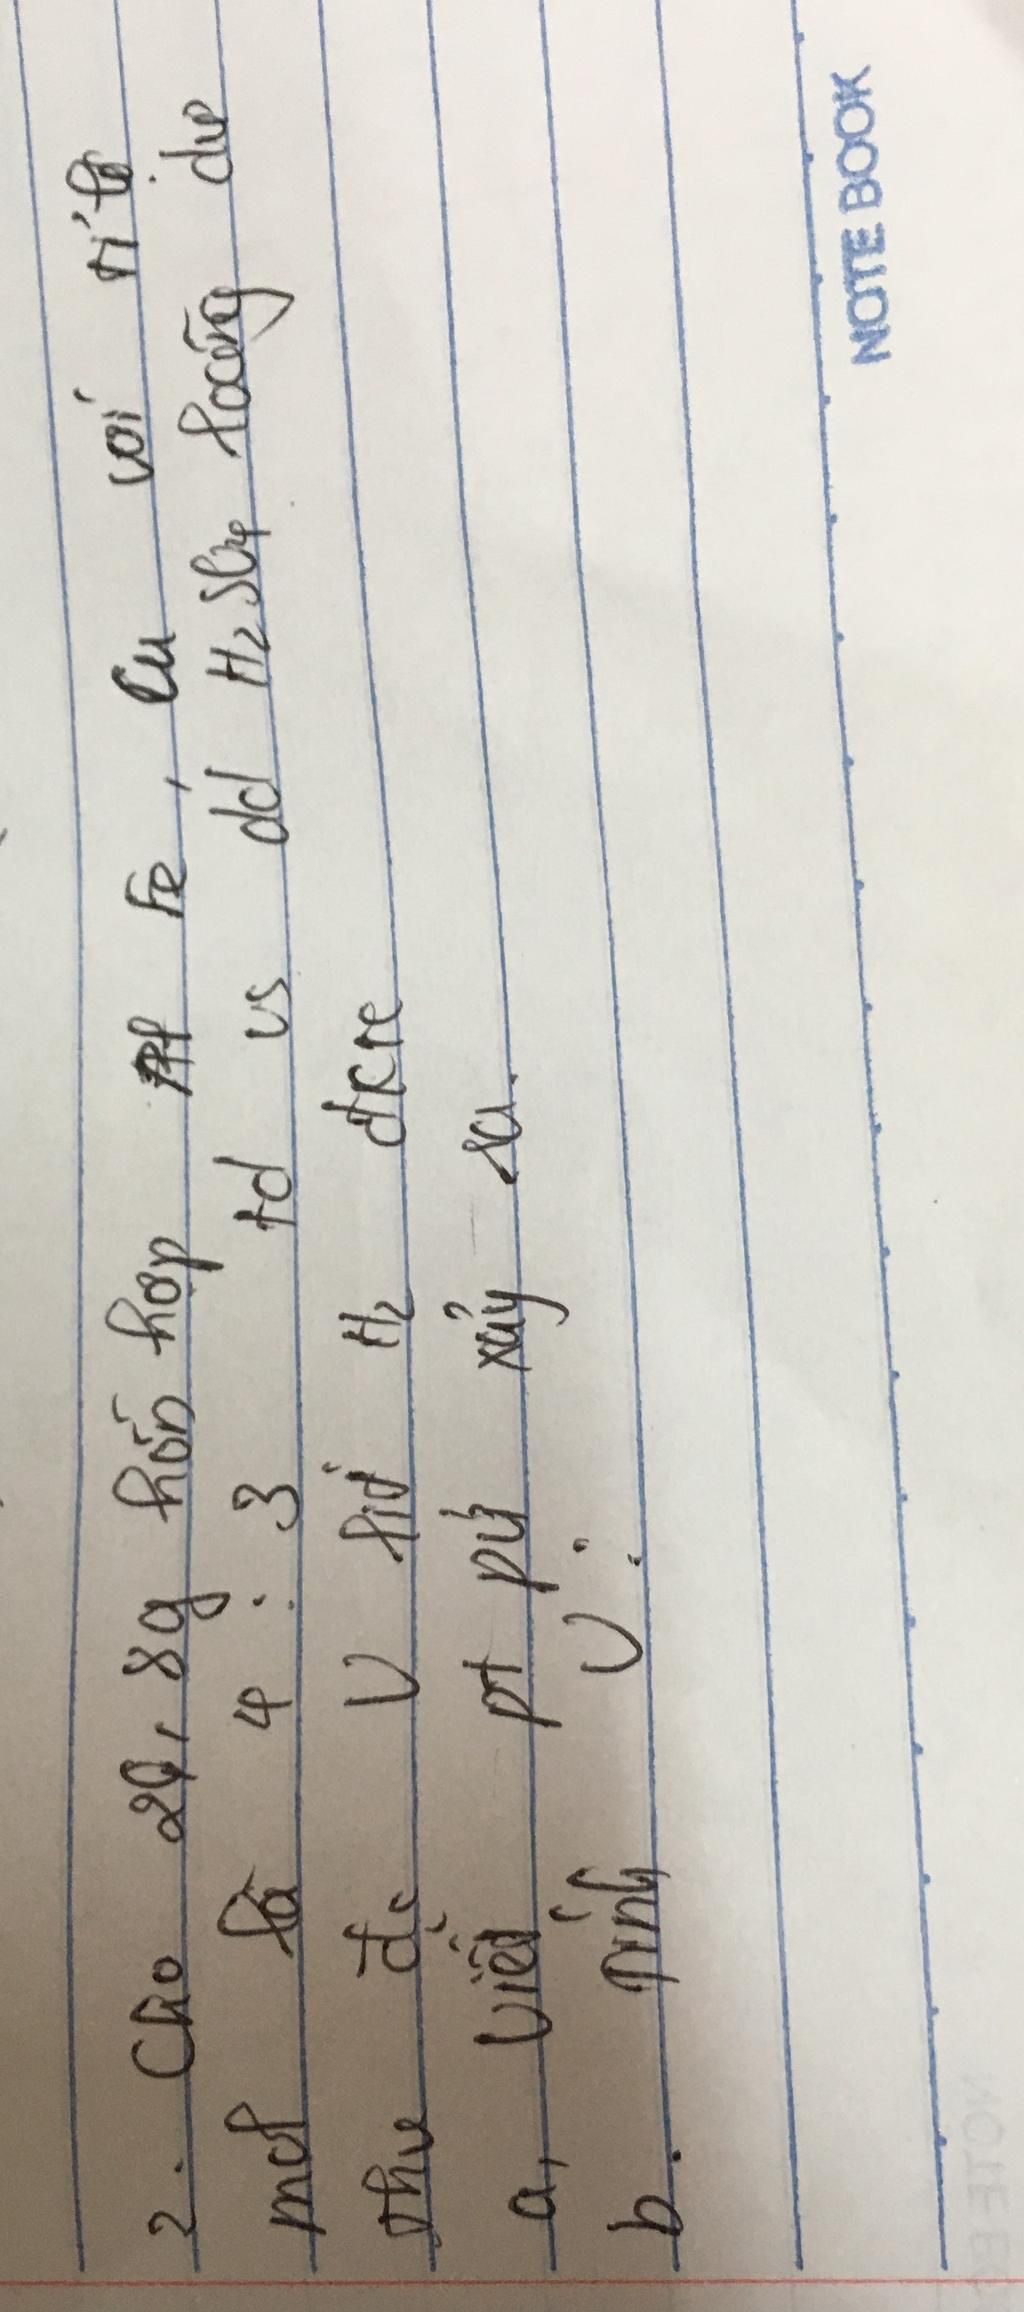 2. Cho 20,8g hỗn hợp Fe, Cu với tỉ lệ
mol là 4:3 td vs dd H2SO4 loãng dư
thu đc V lít H2 đktc
a, Viết pt pứ xảy ra.
b. Tính V:
NOTE BOOK